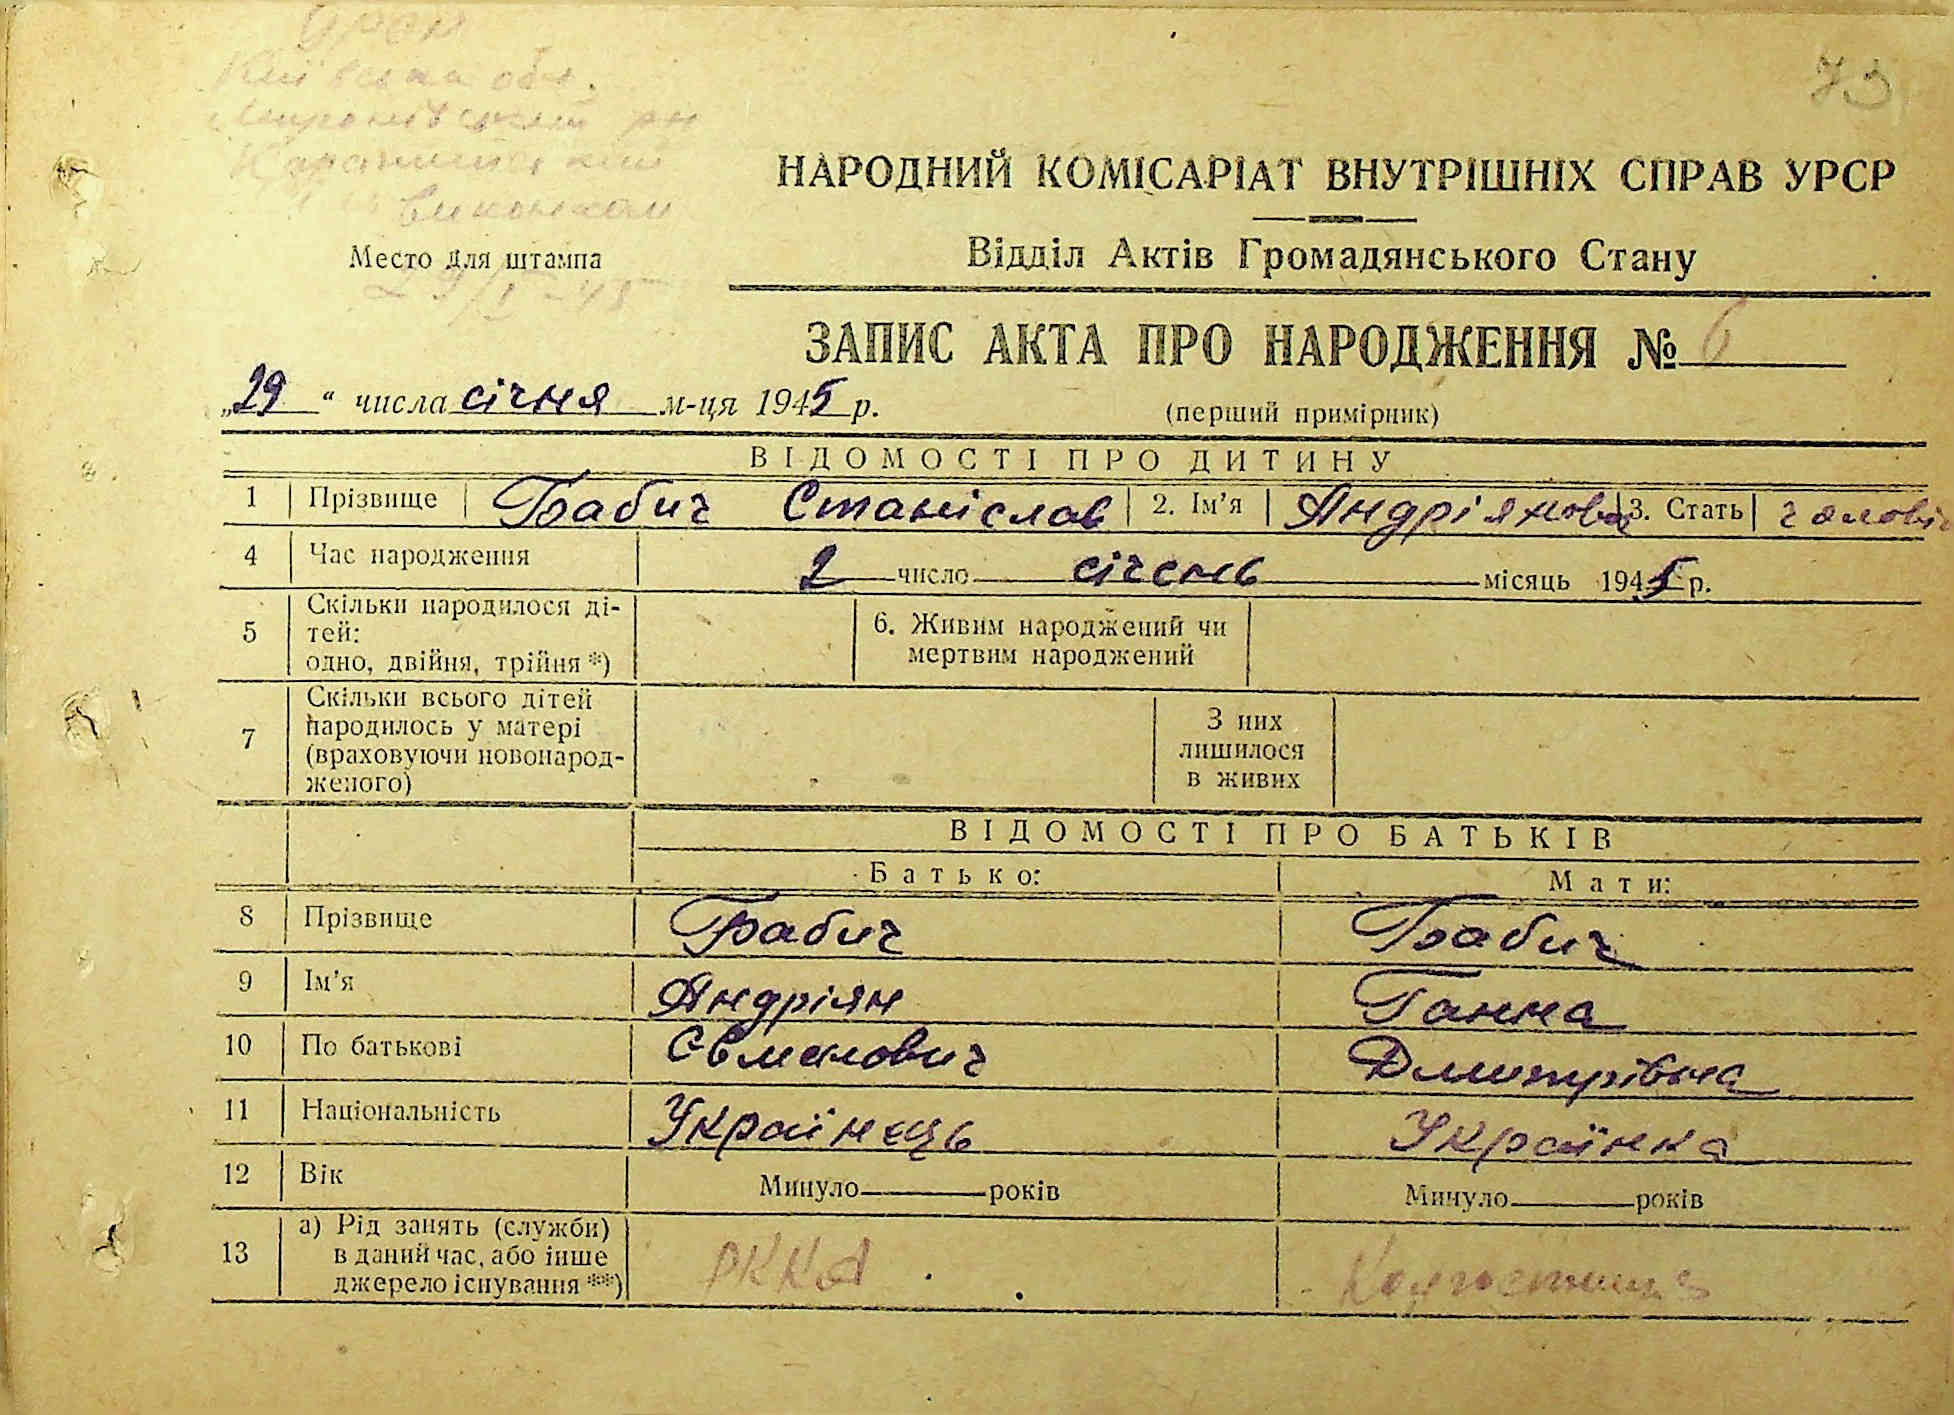 УРСР
Київська обл.
Миронівський рн
виконком
73
НАРОДНИЙ КОМІСАРІАТ ВНУТРІШНІХ СПРАВ УРСР
Место для штампа
29/I-45
Відділ Актів Громадянського Стану
ЗАПИС АКТА ПРО НАРОДЖЕННЯ № 6
„29“ числа січня м-ця 1945 р.
(перший примірник)
ВІДОМОСТІ ПРО ДИТИНУ
1 Прізвище Бабич Станіслав 2. Ім'я Андріянович 3. Стать чоловіч
4 Час народження 2 число січень місяць 1945 р.
5 Скільки народилося ді-
тей:
одно, двійня, трійня *)
6. Живим народжений чи
мертвим народжений
7 Скільки всього дітей
народилось у матері
(враховуючи новонарод-
женого)
З них
лишилося
в живих
ВІДОМОСТІ ПРО БАТЬКІВ
Батько: Мати:
8 Прізвище Бабич Бабич
9 Ім'я Андріян Ганна
10 По батькові Дмитрівна
11 Національність Українець Українка
12 Вік Минуло років Минуло років
13 а) Рід занять (служби)
в даний час, або інше
джерело існування **)
РККА Колгоспниця